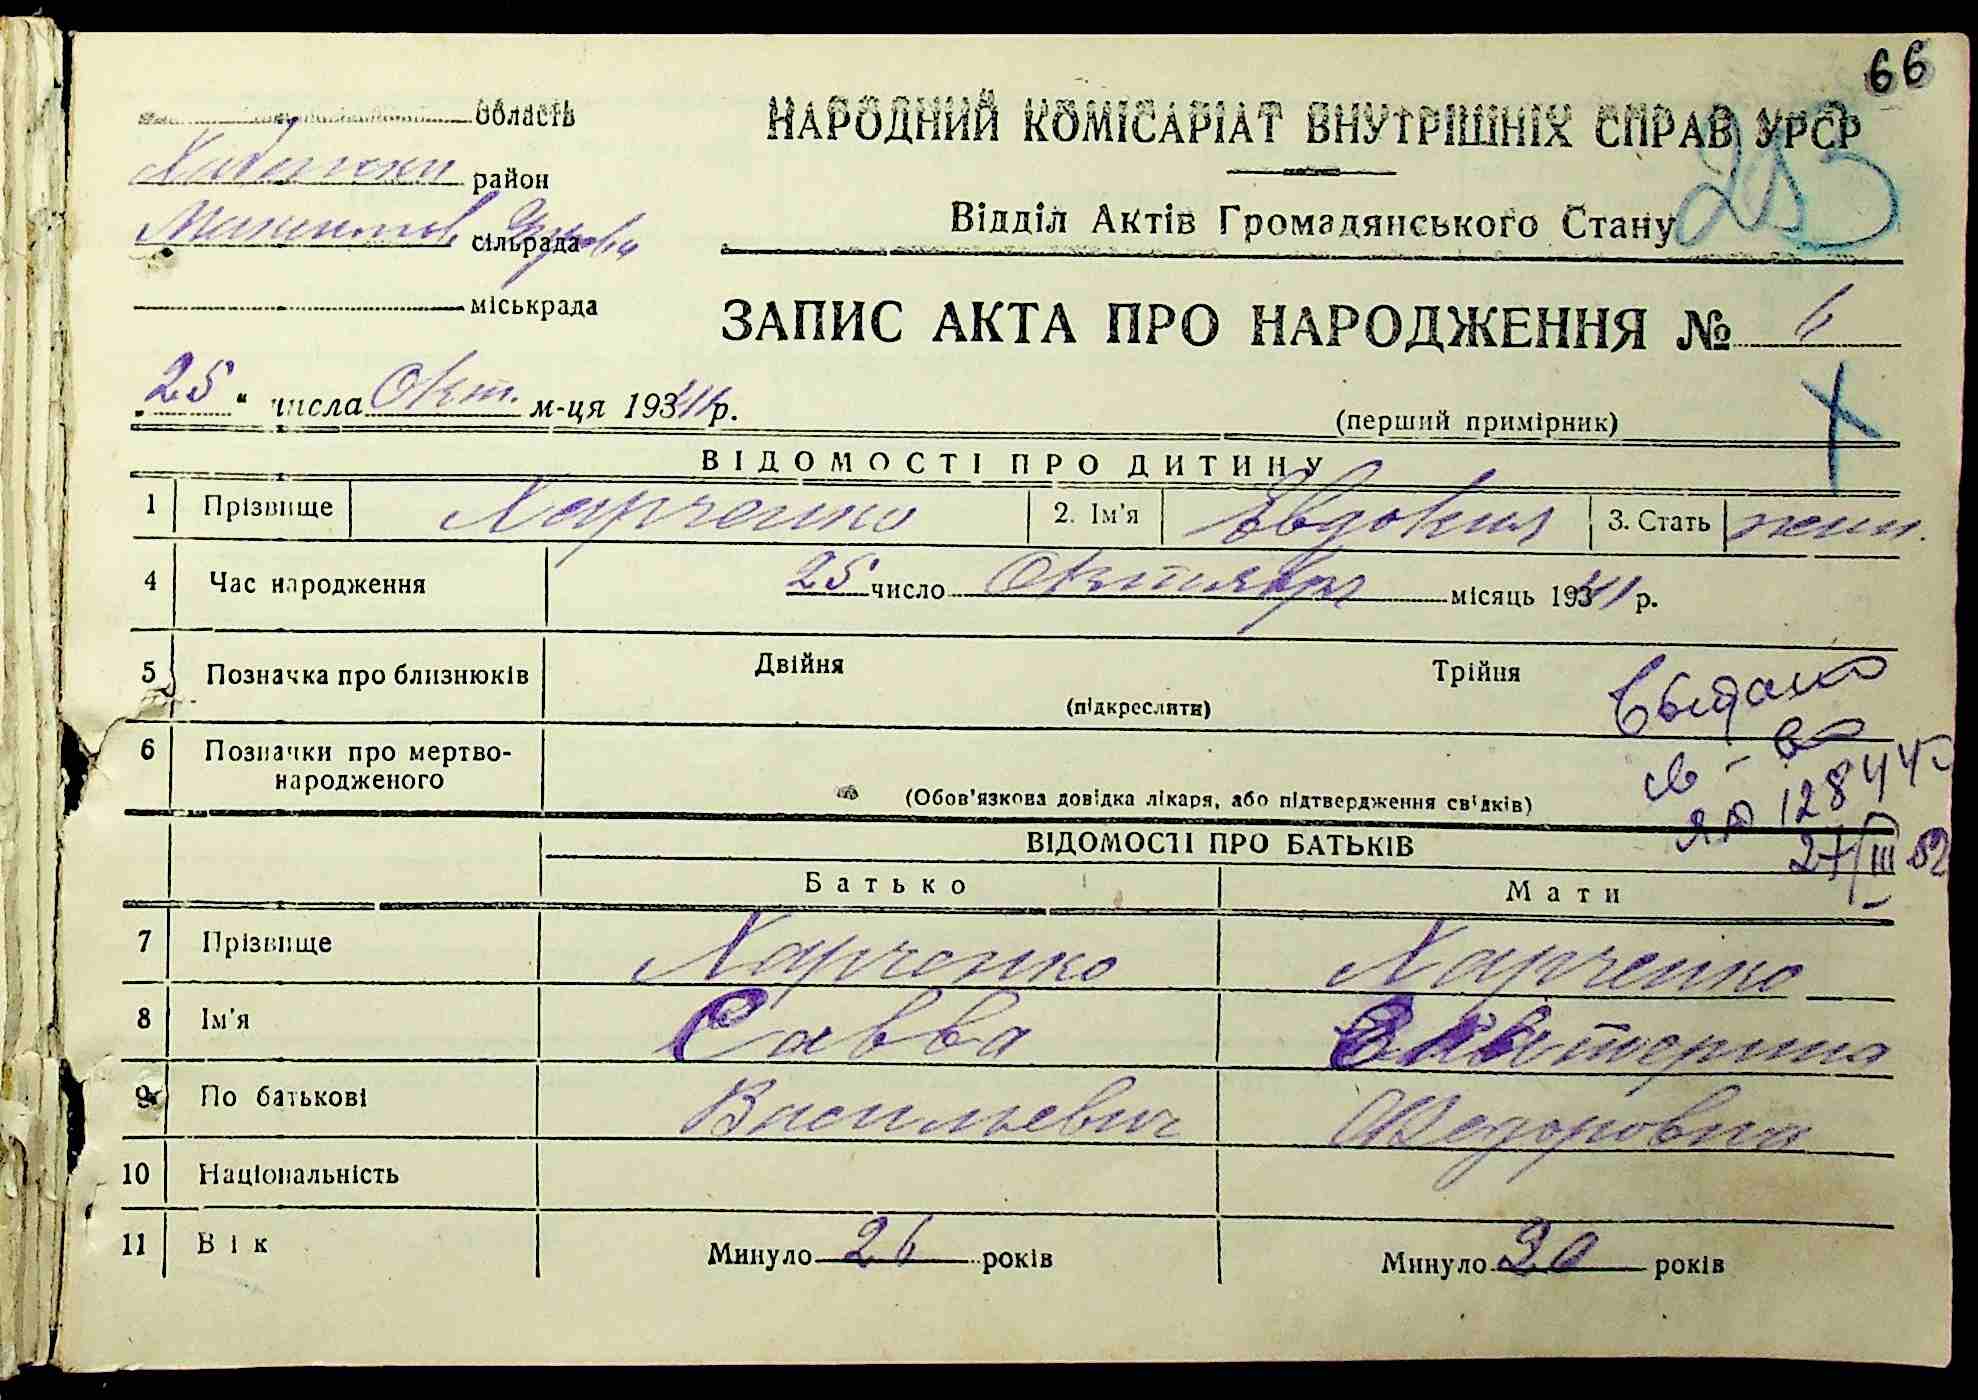 66
область
НАРОДНИЙ КОМІСАРІАТ ВНУТРІШНІХ СПРАВ УРСР
район
253
сільрада
Відділ Актів Громадянського Стану
міськрада
ЗАПИС АКТА ПРО НАРОДЖЕННЯ № 6
"25" числа Окт. м-ця 1941 р.
(перший примірник)
ВІДОМОСТІ ПРО ДИТИНУ
1 Прізвище Харченко 2. Ім'я Евдокия 3. Стать жен.
4 Час народження 25 число Октября місяць 1941 р.
5 Позначка про близнюків Двійня Трійня
(підкреслити)
Выдано
6 Позначки про мертво-
народженого
св-во
(Обов'язкова довідка лікаря, або підтвердження свідків)
128445
27/III 52
ВІДОМОСТІ ПРО БАТЬКІВ
Батько Мати
7 Прізвище Харченко Харченко
8 Ім'я Савва Екатерина
9 По батькові Васильевич Федоровна
10 Національність
11 Вік Минуло 26 років Минуло 30 років